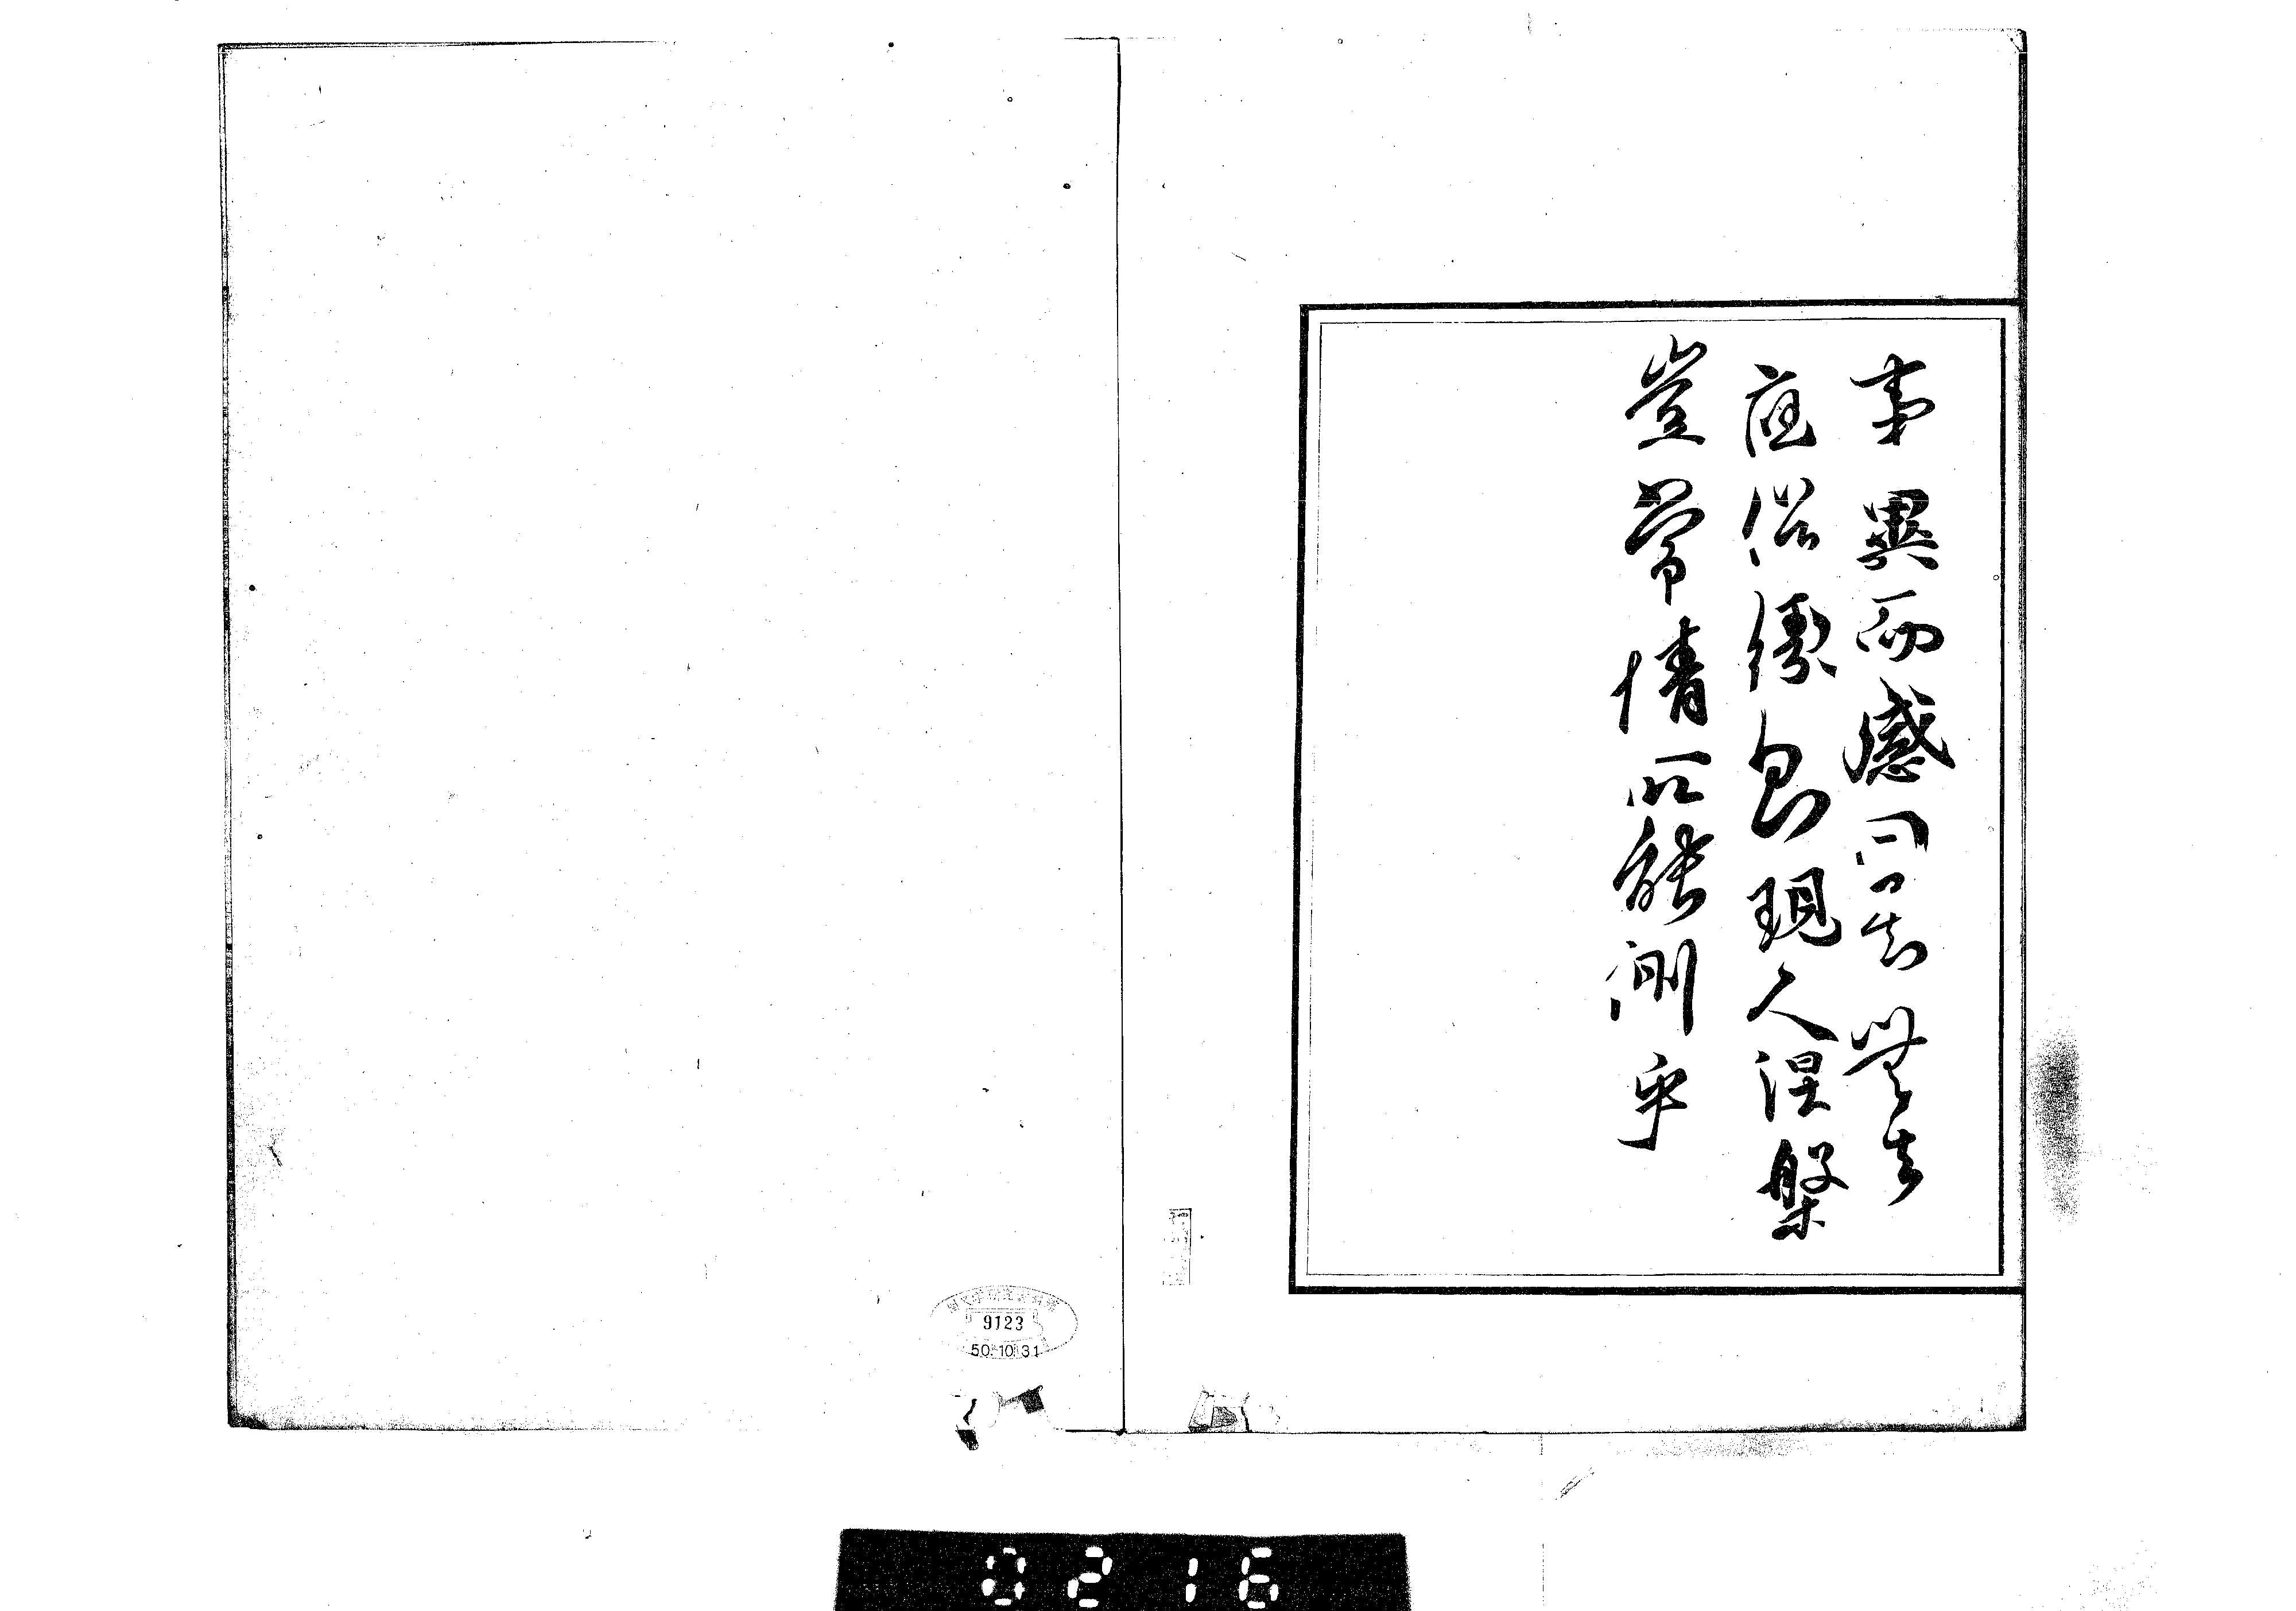 事異而感同
應俗緣即現入涅槃
豈常情所能測乎
9123
50.10.31
0216